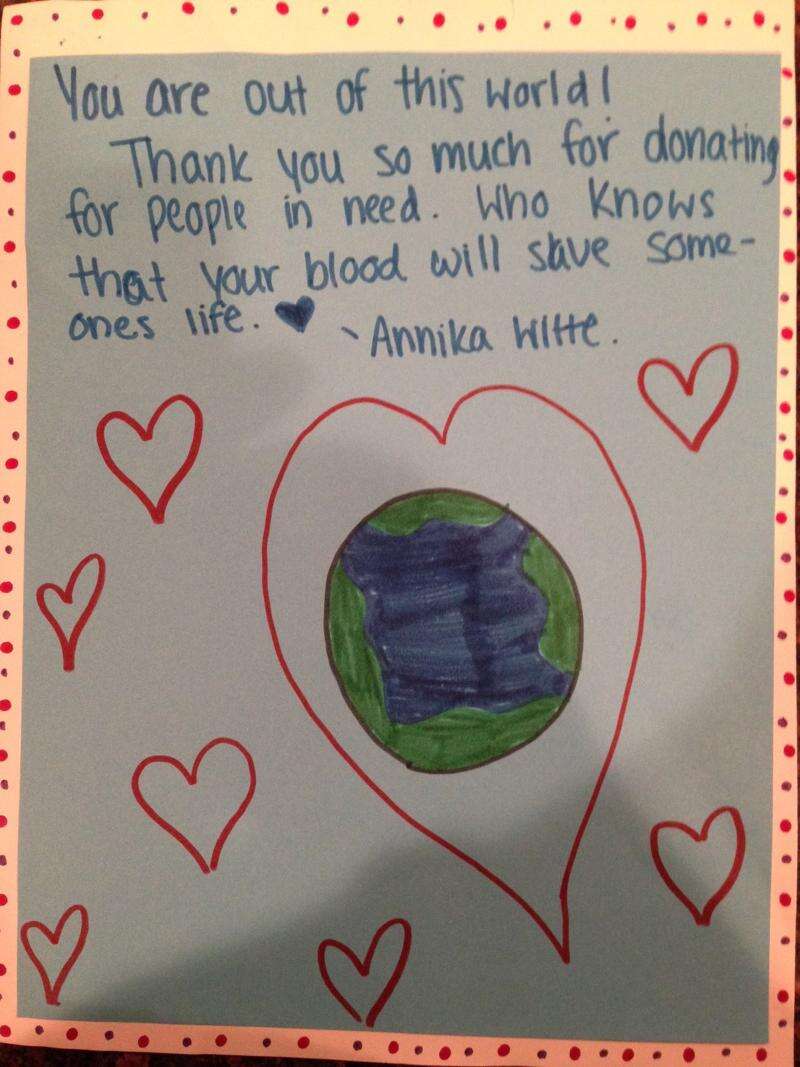 You are out of this world!
Thank you so much for donating
for people in need. Who knows
that your blood will save some-
ones life. ♥ ~Annika Witte.